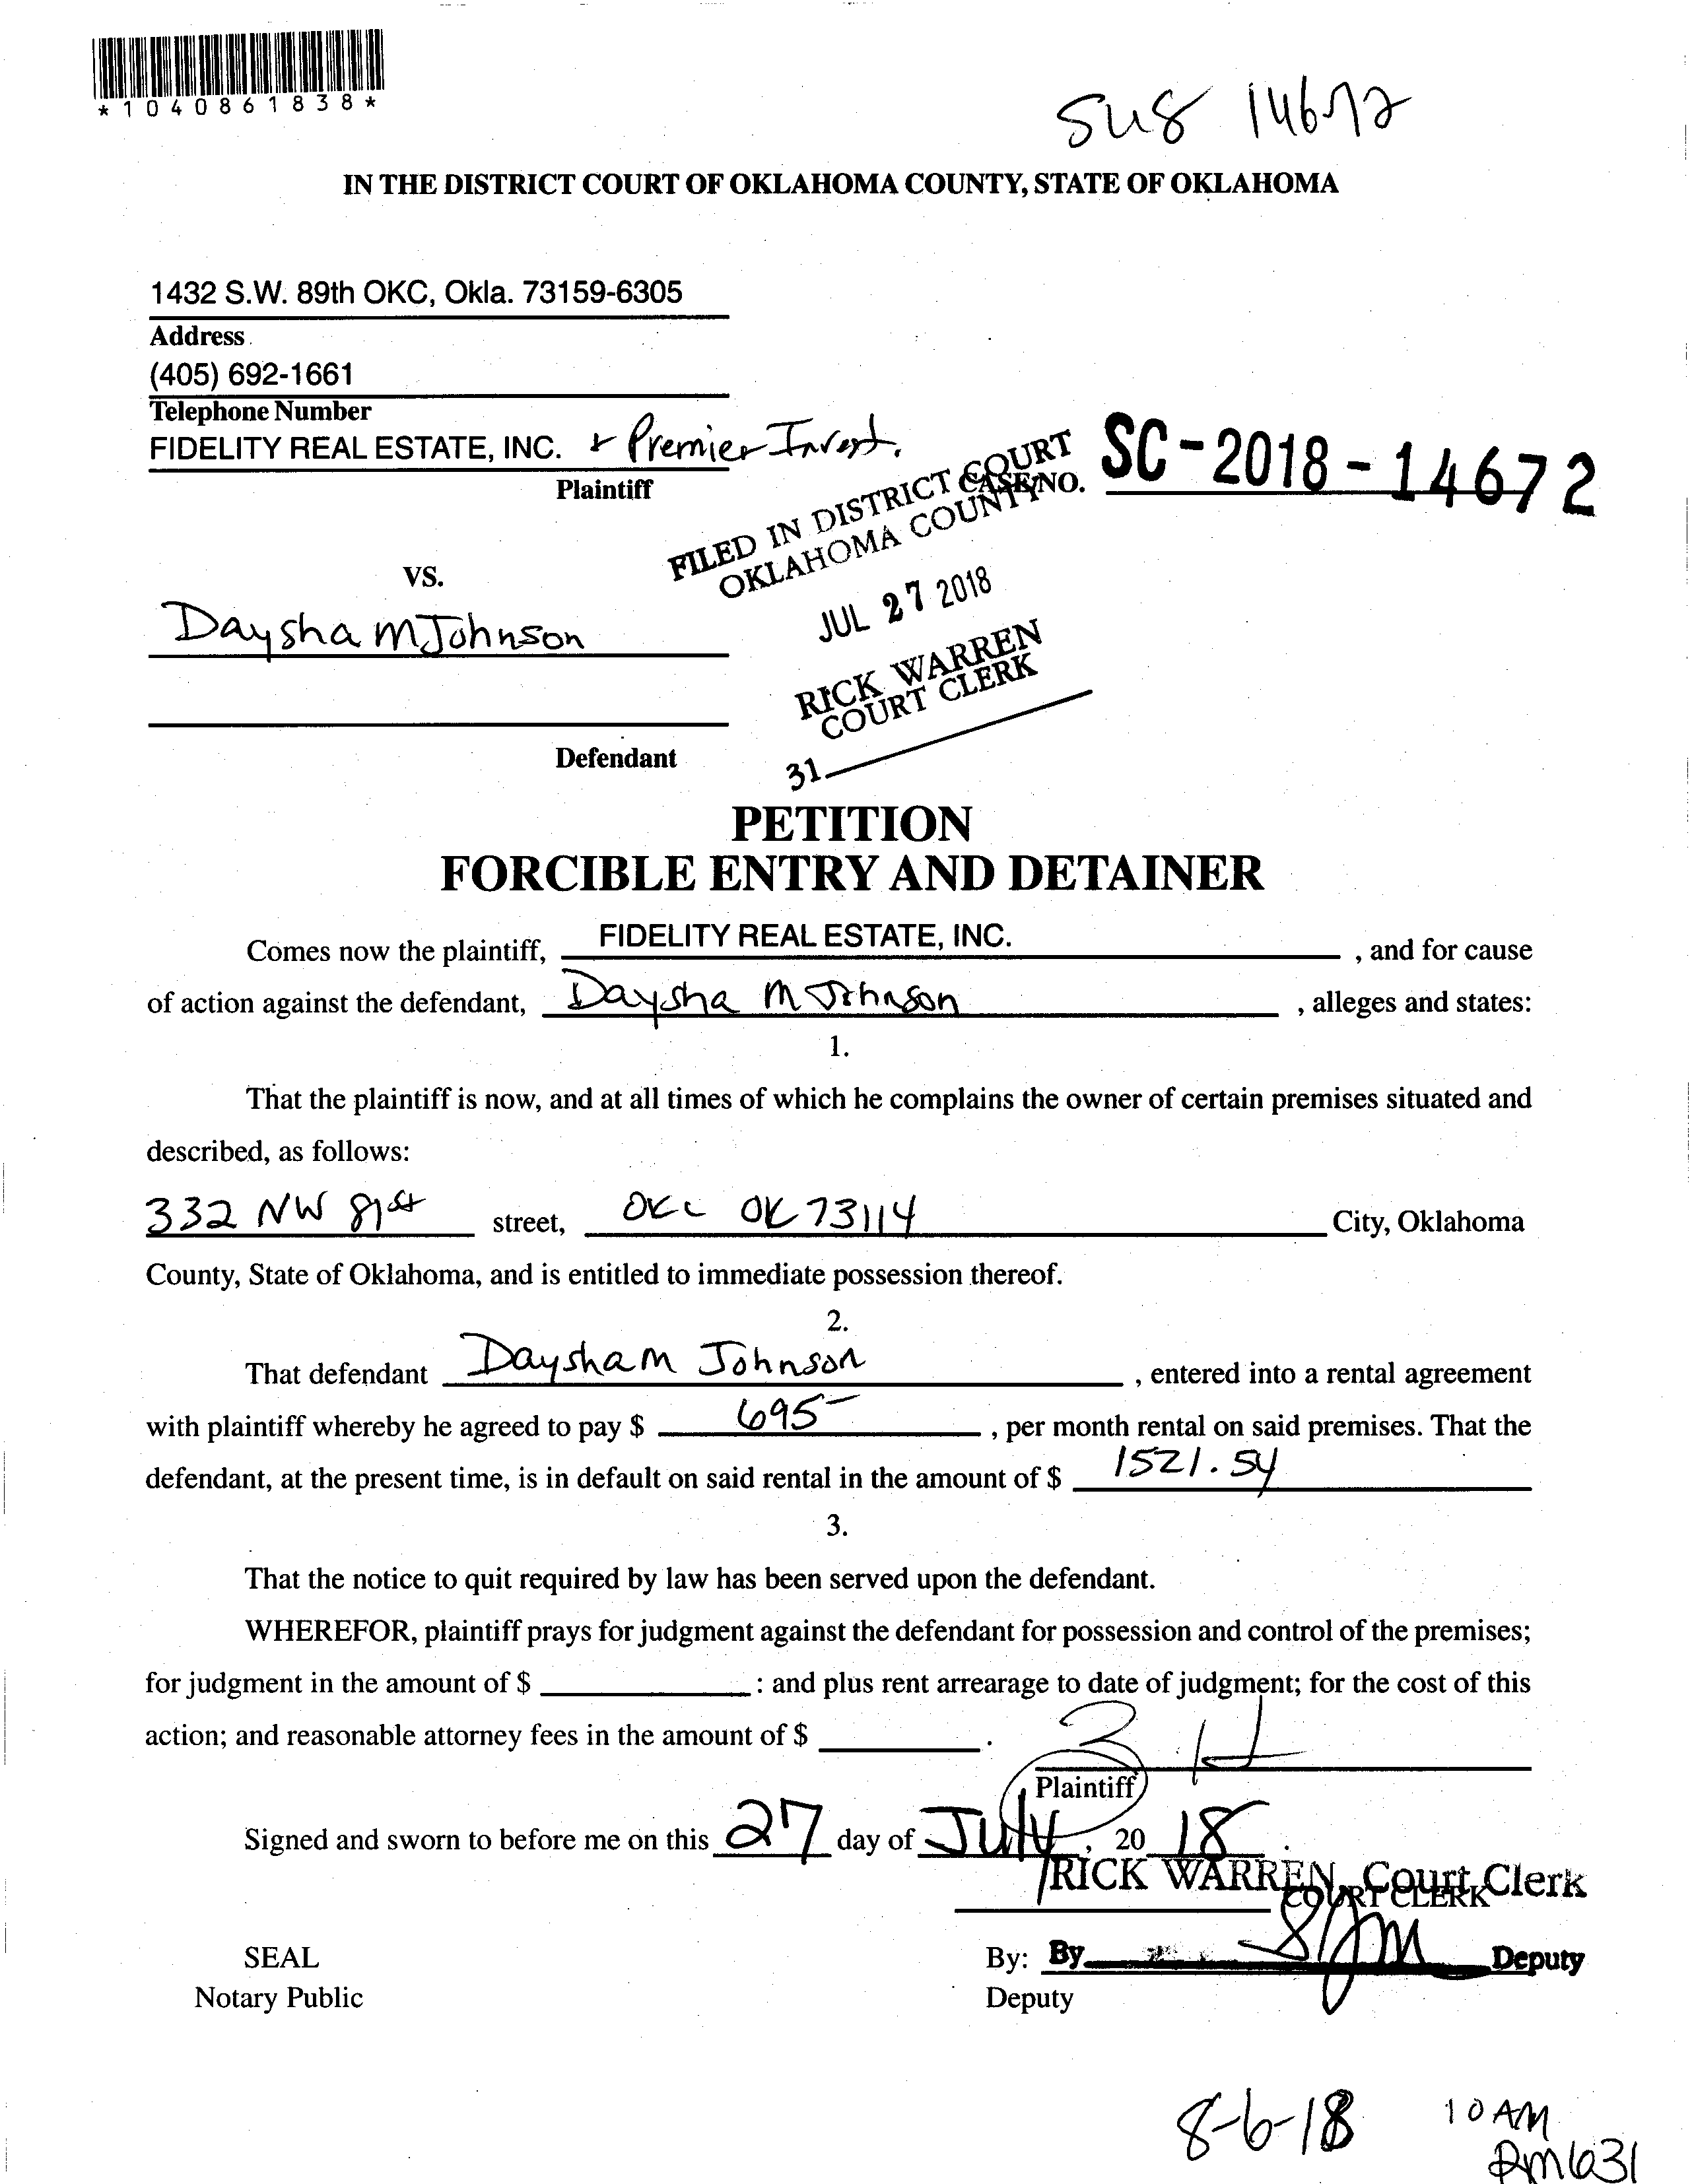 *1040861838*
14672
IN THE DISTRICT COURT OF OKLAHOMA COUNTY, STATE OF OKLAHOMA
1432 S.W. 89th OKC, Okla. 73159-6305
Address
(405) 692-1661
Telephone Number
FIDELITY REAL ESTATE, INC. + Premier Invest.
Plaintiff
CASE NO. SC-2018-14672
FILED IN DISTRICT COURT
OKLAHOMA COUNTY
JUL 27 2018
RICK WARREN
COURT CLERK
31
VS.
Daysha M Johnson
Defendant
PETITION
FORCIBLE ENTRY AND DETAINER
Comes now the plaintiff, FIDELITY REAL ESTATE, INC. , and for cause
of action against the defendant, Daysha M Johnson , alleges and states:
1.
That the plaintiff is now, and at all times of which he complains the owner of certain premises situated and
described, as follows:
332 NW 81st street, OKC OK 73114 City, Oklahoma
County, State of Oklahoma, and is entitled to immediate possession thereof.
2.
That defendant Daysha M Johnson , entered into a rental agreement
with plaintiff whereby he agreed to pay $ 695- , per month rental on said premises. That the
defendant, at the present time, is in default on said rental in the amount of $ 1521.54
3.
That the notice to quit required by law has been served upon the defendant.
WHEREFOR, plaintiff prays for judgment against the defendant for possession and control of the premises;
for judgment in the amount of $ : and plus rent arrearage to date of judgment; for the cost of this
action; and reasonable attorney fees in the amount of $ .
Plaintiff
Signed and sworn to before me on this 27 day of July, 20 18.
RICK WARREN, Court Clerk
COURT CLERK
SEAL
By: By Deputy
Notary Public
Deputy
8-6-18 10 AM
RM 631